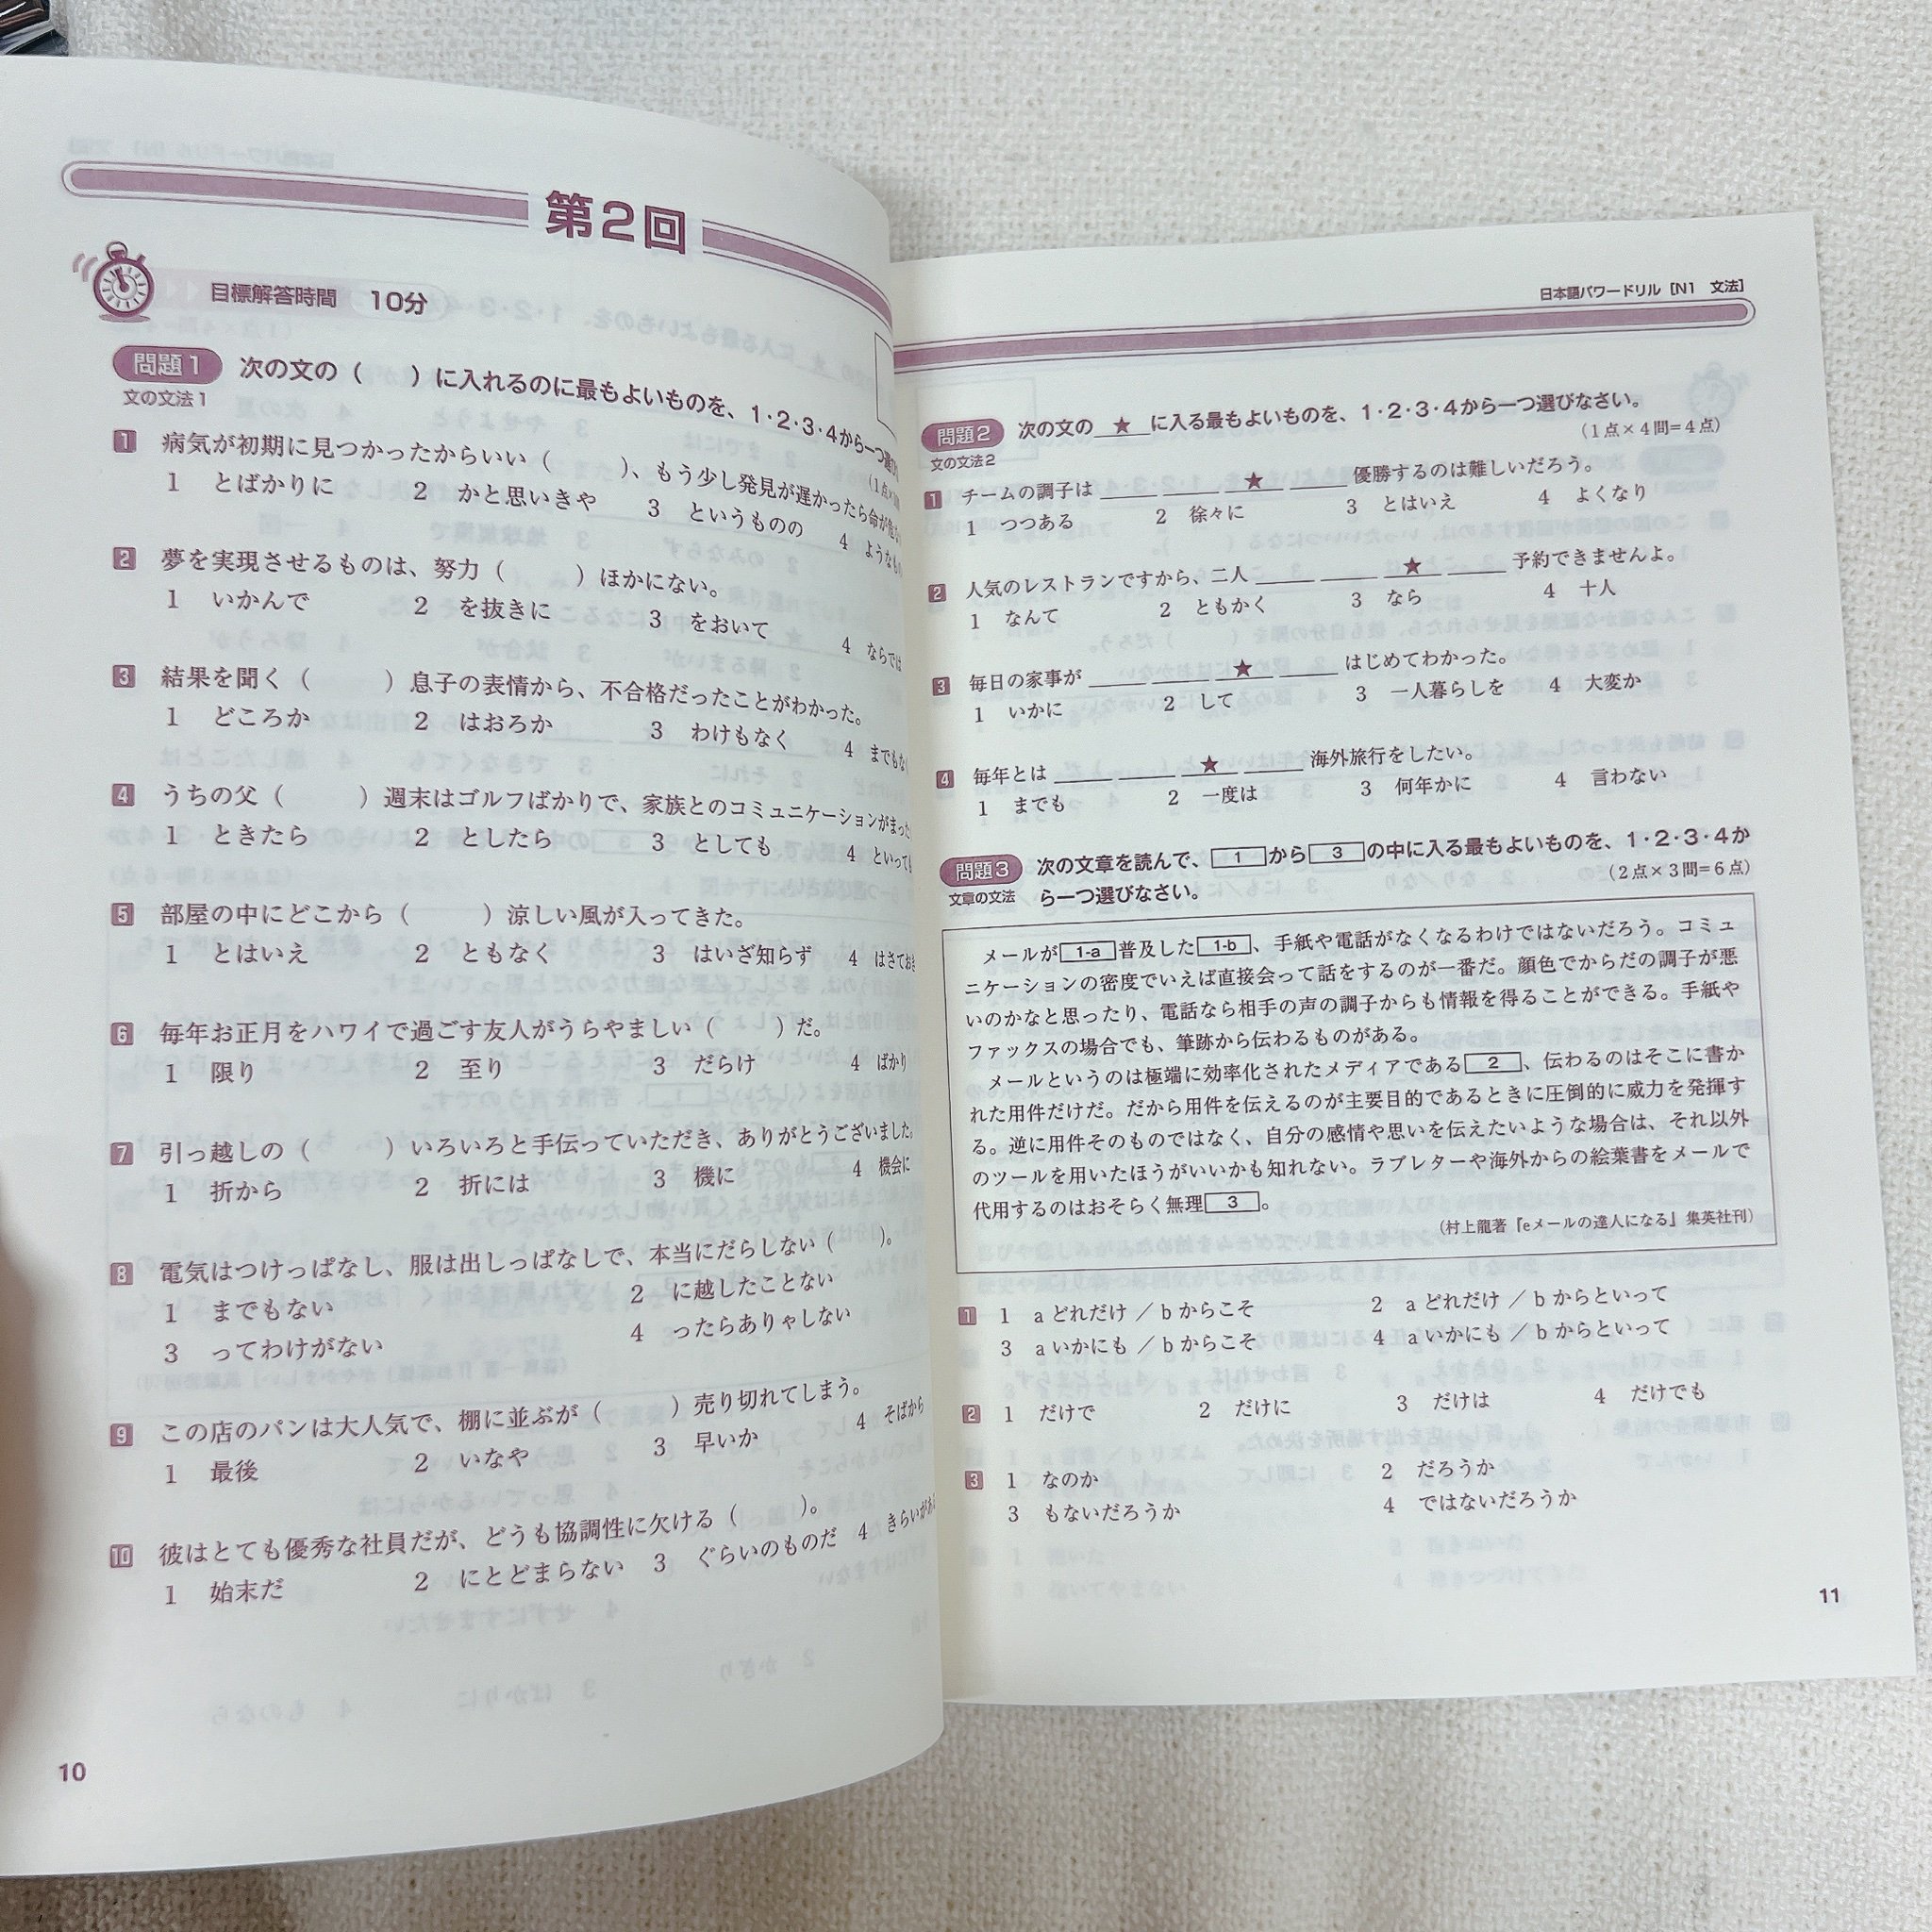 第2回
目標解答時間 10分
問題1 次の文の（　　）に入れるのに最もよいものを、1・2・3・4から一つ選び
文の文法1
(1点×
1 病気が初期に見つかったからいい（　　）、もう少し発見が遅かったら命が危な
1 とばかりに 2 かと思いきや 3 というものの 4 ようなもの
2 夢を実現させるものは、努力（　　）ほかにない。
1 いかんで 2 を抜きに 3 をおいて 4 ならでは
3 結果を聞く（　　）息子の表情から、不合格だったことがわかった。
1 どころか 2 はおろか 3 わけもなく 4 までもな
4 うちの父（　　）週末はゴルフばかりで、家族とのコミュニケーションがまった
1 ときたら 2 としたら 3 としても 4 といっても
5 部屋の中にどこから（　　）涼しい風が入ってきた。
1 とはいえ 2 ともなく 3 はいざ知らず 4 はさておき
6 毎年お正月をハワイで過ごす友人がうらやましい（　　）だ。
1 限り 2 至り 3 だらけ 4 ばかり
7 引っ越しの（　　）いろいろと手伝っていただき、ありがとうございました。
1 折から 2 折には 3 機に 4 機会に
8 電気はつけっぱなし、服は出しっぱなしで、本当にだらしない（　　）。
1 までもない 2 に越したことない
3 ってわけがない 4 ったらありゃしない
9 この店のパンは大人気で、棚に並ぶが（　　）売り切れてしまう。
1 最後 2 いなや 3 早いか 4 そばから
10 彼はとても優秀な社員だが、どうも協調性に欠ける（　　）。
1 始末だ 2 にとどまらない 3 ぐらいのものだ 4 きらいがあ
10
日本語パワードリル［N1 文法］
問題2 次の文の ★ に入る最もよいものを、1・2・3・4から一つ選びなさい。
文の文法2
(1点×4問=4点)
1 チームの調子は ＿＿ ＿＿ ★ ＿＿ 優勝するのは難しいだろう。
1 つつある 2 徐々に 3 とはいえ 4 よくなり
2 人気のレストランですから、二人 ＿＿ ＿＿ ★ ＿＿ 予約できませんよ。
1 なんて 2 ともかく 3 なら 4 十人
3 毎日の家事が ＿＿ ＿＿ ★ ＿＿ はじめてわかった。
1 いかに 2 して 3 一人暮らしを 4 大変か
4 毎年とは ＿＿ ＿＿ ★ ＿＿ 海外旅行をしたい。
1 までも 2 一度は 3 何年かに 4 言わない
問題3 次の文章を読んで、1 から 3 の中に入る最もよいものを、1・2・3・4か
文章の文法 ら一つ選びなさい。 (2点×3問=6点)
メールが 1-a 普及した 1-b 、手紙や電話がなくなるわけではないだろう。コミュ
ニケーションの密度でいえば直接会って話をするのが一番だ。顔色でからだの調子が悪
いのかなと思ったり、電話なら相手の声の調子からも情報を得ることができる。手紙や
ファックスの場合でも、筆跡から伝わるものがある。
メールというのは極端に効率化されたメディアである 2 、伝わるのはそこに書か
れた用件だけだ。だから用件を伝えるのが主要目的であるときに圧倒的に威力を発揮す
る。逆に用件そのものではなく、自分の感情や思いを伝えたいような場合は、それ以外
のツールを用いたほうがいいかも知れない。ラブレターや海外からの絵葉書をメールで
代用するのはおそらく無理 3 。
(村上龍著『eメールの達人になる』集英社刊)
1 1 a どれだけ ／ b からこそ 2 a どれだけ ／ b からといって
3 a いかにも ／ b からこそ 4 a いかにも ／ b からといって
2 1 だけで 2 だけに 3 だけは 4 だけでも
3 1 なのか 2 だろうか
3 もないだろうか 4 ではないだろうか
11